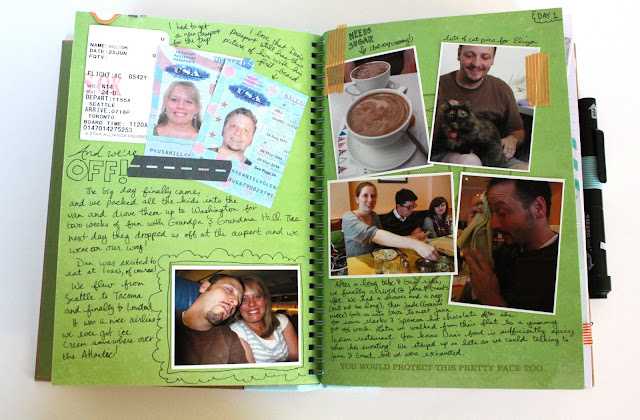 I had to get
a new passport
for the trip
I love that Dan's
passport still has the
picture of him with his
first beard!
NAME:
DATE:25JUN
FQTV:
FLIGHT:AC 0542Y
N14
24-D
DEPART:1155A
SEATTLE
ARRIVE:0718P
TORONTO
BOARD TIME: 1120A
0147014275253
A STAR ALLIANCE MEMBER
USA
USA
And we're
OFF!
The big day finally came,
and we packed all the kids into the
van and drove them up to Washington for
two weeks of fun with Grandpa & Grandma Hill. The
next day they dropped us off at the airport and we
were on our way!
Dan was excited to
eat at 1 Vaes, of course!
We flew from
Seattle to Tacoma
and finally to London!
It was a nice airline,
we even got ice
cream somewhere over
the Atlantic!
DAY 1
NEEDS
SUGAR
(but very creamy)
lots of cat pics for Eliza
After a long tube & bus ride,
we finally arrived at
flat. We had a shower and a nap
(but not too long), then Jane
took us into town to meet Jana
for some Marks & Spencer hot chocolate after she
got off work. Later we walked from their flat to a yummy
Indian restaurant. You know Dan's food is sufficiently spicy
when he's sweating! We stayed up as late as we could talking to
Jane & Grant, but we were exhausted.
YOU WOULD PROTECT THIS PRETTY FACE TOO.